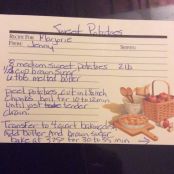 Sweet Potatoes
RECIPE FOR: Marjorie
FROM: Jenny SERVES:
8 medium sweet potatoes 2lb
cup brown sugar
cup melted butter
peel potatoes, cut in 1 inch
chunks, boil for 10 to 12 min
until just tender
drain.
Transfer to 9 quart baking dish
Add butter and brown sugar
bake at 375° for 30 to 35 min